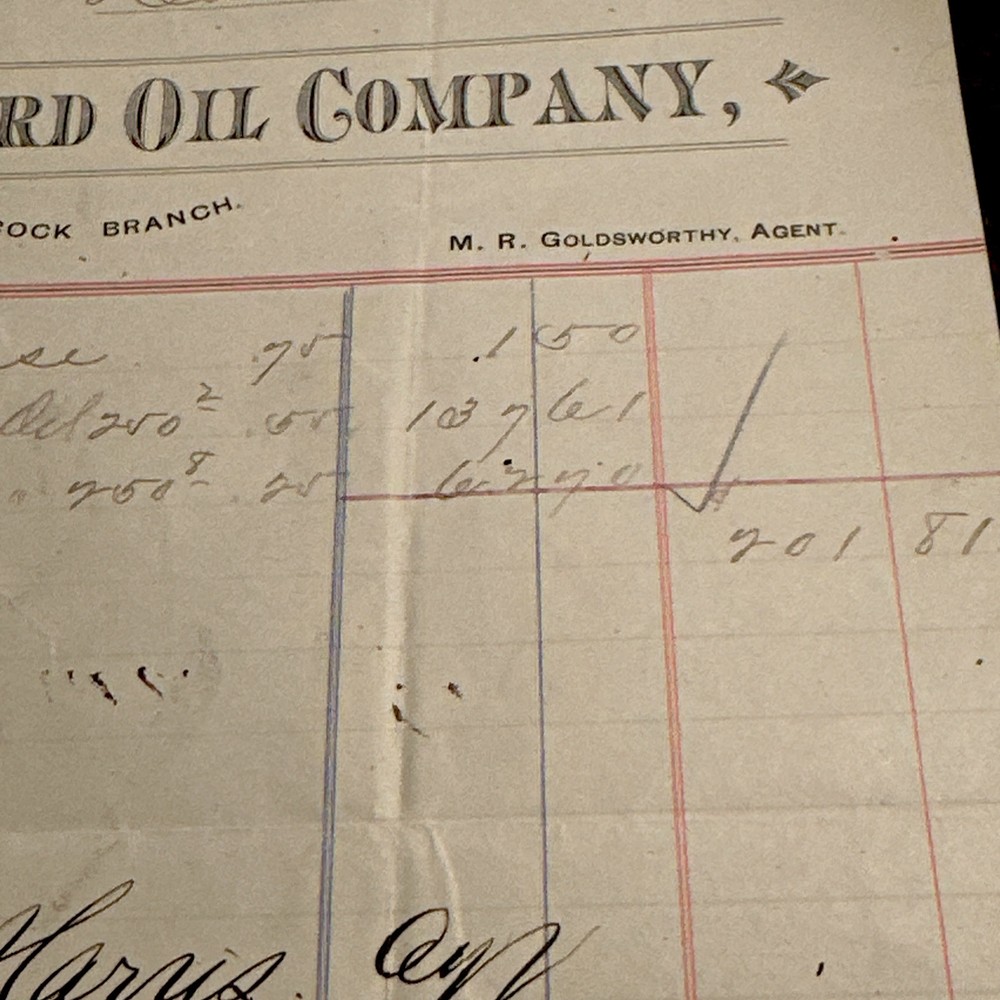 RD OIL COMPANY,
OCK BRANCH.
M. R. GOLDSWORTHY, AGENT.
se .75 1 50
Oil 250² .55 137 61
" 250⁸ 25 62 70
201 81
Harris. Agt